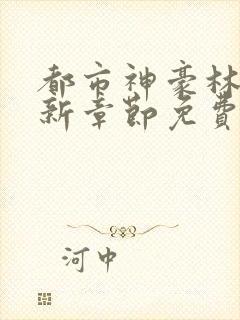 都市神豪林
新章節免費
河中